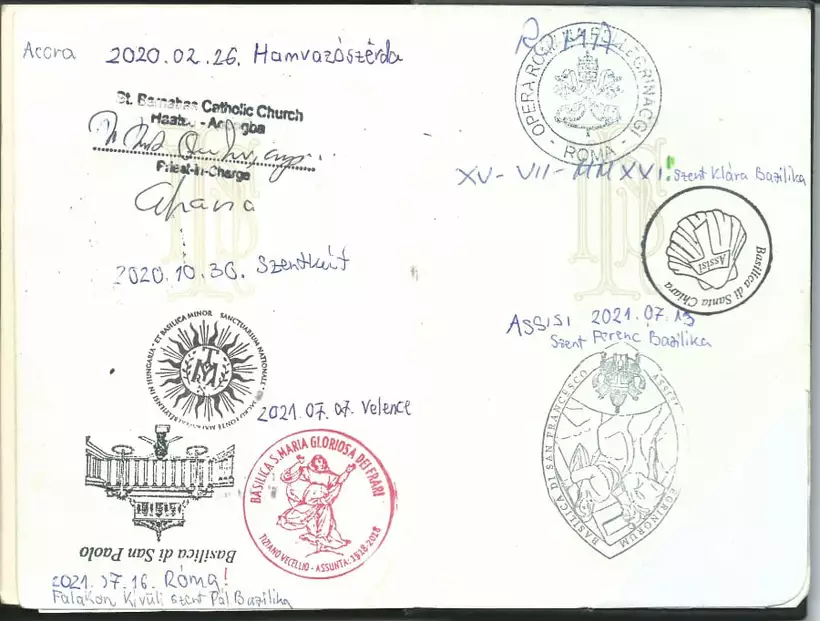 Accra 2020.02.26. Hamvazószerda
St. Barnabas Catholic Church
Priest-in-Charge
Ghana
2020.10.30. Szentkút
SANCTUARIUM NATIONALE
ET BASILICA MINOR
IN HUNGARIA
2021.07.07. Velence
BASILICA S. MARIA GLORIOSA DEI FRARI
TIZIANO VECELLIO - ASSUNTA: 1518-2018
Basilica di San Paolo
2021.07.16. Róma!
Falakon Kívüli Szent Pál Bazilika
OPERA ROMANA PELLEGRINAGGI
- ROMA -
XV - VII - MMXXI.
Szent Klára Bazilika
Assisi
Basilica di Santa Chiara
ASSISI 2021.07.15
Szent Ferenc Bazilika
BASILICA DI SAN FRANCESCO
ASSISI